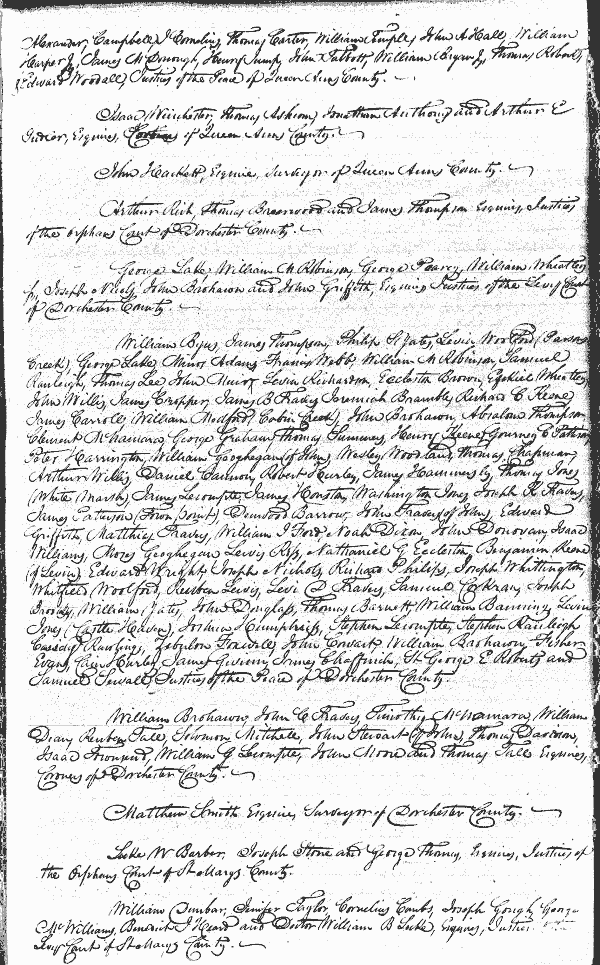 Alexander Campbell, J Cornelius, Thomas Carter, William Temple, John A Hall, William
Harper Jr, James McDonough, Henry Jump, John Talbott, William Bryan Jr, Thomas Roberts,
Edward Woodall, Justices of the Peace of Queen Anns County.
Isaac Winchester, Thomas Askom, Jonathan Anthony and Arthur E
Esquires, Coroners of Queen Anns County.
John Hackett, Esquire, Surveyor of Queen Anns County.
Arthur Rich, Thomas Brerewood and James Thompson Esquires, Justices
of the Orphans Court of Dorchester County.
George Lake, William McRobinson, George Pearcy, William Wheatley
Joseph Nicols, John Brohawn and John Griffith, Esquires Justices of the Levy Court
of Dorchester County.
William Byus, James Thompson, Philip St Yates, Levin Woolford (Parsons
Creek), George Lake, Minos Adams, Francis Webb, William McRobinson, Samuel
Rawleigh, Thomas Lee, John Muir, Levin Richardson, Eccleston Brown, Ezekiel Wheatley
John Willis, James Cropper, James B Travers, Jeremiah Bramble, Richard C Keene
James Carroll, William Medford, (Cabin Creek), John Brohawn, Absalom Thompson
Clement McNamara, George Graham, Thomas Summers, Henry Keene, Gourney C Pattison
Peter Harrington, William Geoghegan of John, Wesley Woodland, Thomas Chapman
Arthur Willis, Daniel Cannon, Robert Hurley, James Hammersly, Thomas Jones
(White Marsh), James Lecompte, James Houston, Washington Jones, Joseph K Travers,
James Patterson (Town point), Denwood Barrow, John Travers of John, Edward
Griffith, Matthias Travers, William J Ford, Noah Dixon, John Donovan, Isaac
Williams, Moses Geoghegan, Lewis Ross, Nathaniel G Eccleston, Benjamin Keene
(of Levin), Edward Wright, Joseph Nichols, Richard Philips, Joseph Whittington,
Whitfield Woolford, Reuben Lewis, Levi D Travers, Samuel Corkran, Joseph
William Yates, John Douglass, Thomas Barnett, William Banning, Levin
Jones (Castle Haven), Joshua Humphriss, Stephen Lecompte, Stephen Rawleigh
Cassaday Rawlings, Zebulon Foxwell, John Cowart, William Brohawn, Fisher
Evans, Hurley, James Gwinn, James Chaffinch, St George E Roberts and
Samuel Sewall, Justices of the Peace of Dorchester County.
William Brohawn, John C Travers, Timothy McNamara, William
Dean, Reuben Tall, Solomon Mitchell, John Stewart (of John), Thomas Davidson,
Isaac Townsend, William G Lecompte, John Moore and Thomas Tall Esquires,
Coroners of Dorchester County.
Matthew Smith Esquire, Surveyor of Dorchester County.
Luke W Barber, Joseph Stone and George Thomas, Esquires, Justices of
the Orphans Court of St Marys County.
William Dunbar, Jenifer Taylor, Cornelius Combs, Joseph Gough, George
McWilliams, Benedict J Heard and Doctor William B Esquires, Justices
Levy Court of St Marys County.